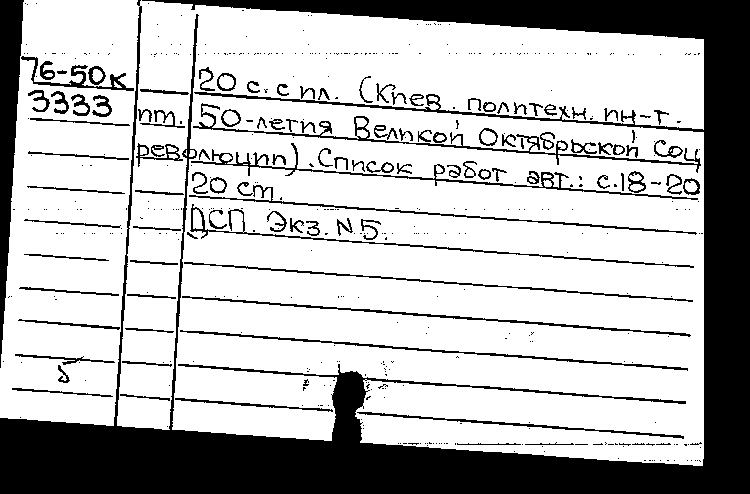 76-50к 20 с. с ил. (Киев. политехн. ин-т.
3333 им. 50-летия Великой Октябрьской Соц
революции). Список работ авт.: с.18-20
20 ст.
ДСП. Экз. N 5.
5